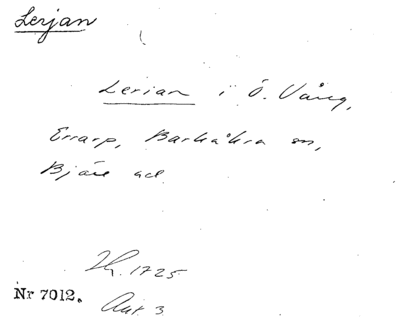 Lerjan
Lerian i Ö. Vång,
Errarp, Barkåkra sn,
Bjäre hd
1725
Nr 7012.
Akt 3